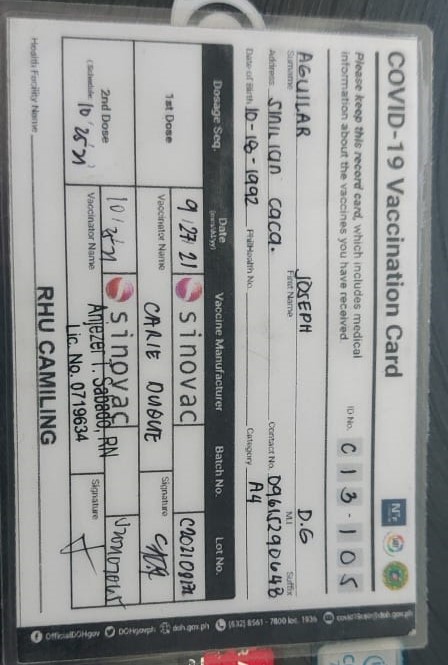 COVID-19 Vaccination Card
Please keep this record card, which includes medical
information about the vaccines you have received.
ID No. C13-105
AGUILAR JOSEPH D.G
Surname First Name M.I Suffix
Address Sinilian caca. Contact No. 09615290648
Date of Birth 10-18-1992 PhilHealth No. Category A4
Dosage Seq. Date Vaccine Manufacturer Batch No. Lot No.
(mm/dd/yy)
1st Dose 9/27/21 sinovac
Vaccinator Name CARIE DUQUE Signature
2nd Dose 10/25/21 sinovac
(Schedule: 10/25/21) Vaccinator Name Signature
Lic. No. 0719634
Health Facility Name RHU CAMILING
OfficialDOHgov DOHgovph doh.gov.ph (632) 8651 - 7800 loc. 1936